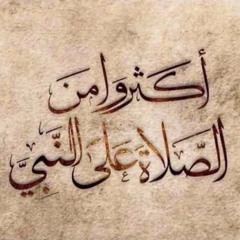 أكثروا من
الصّلاة عَلى النّبيَّ